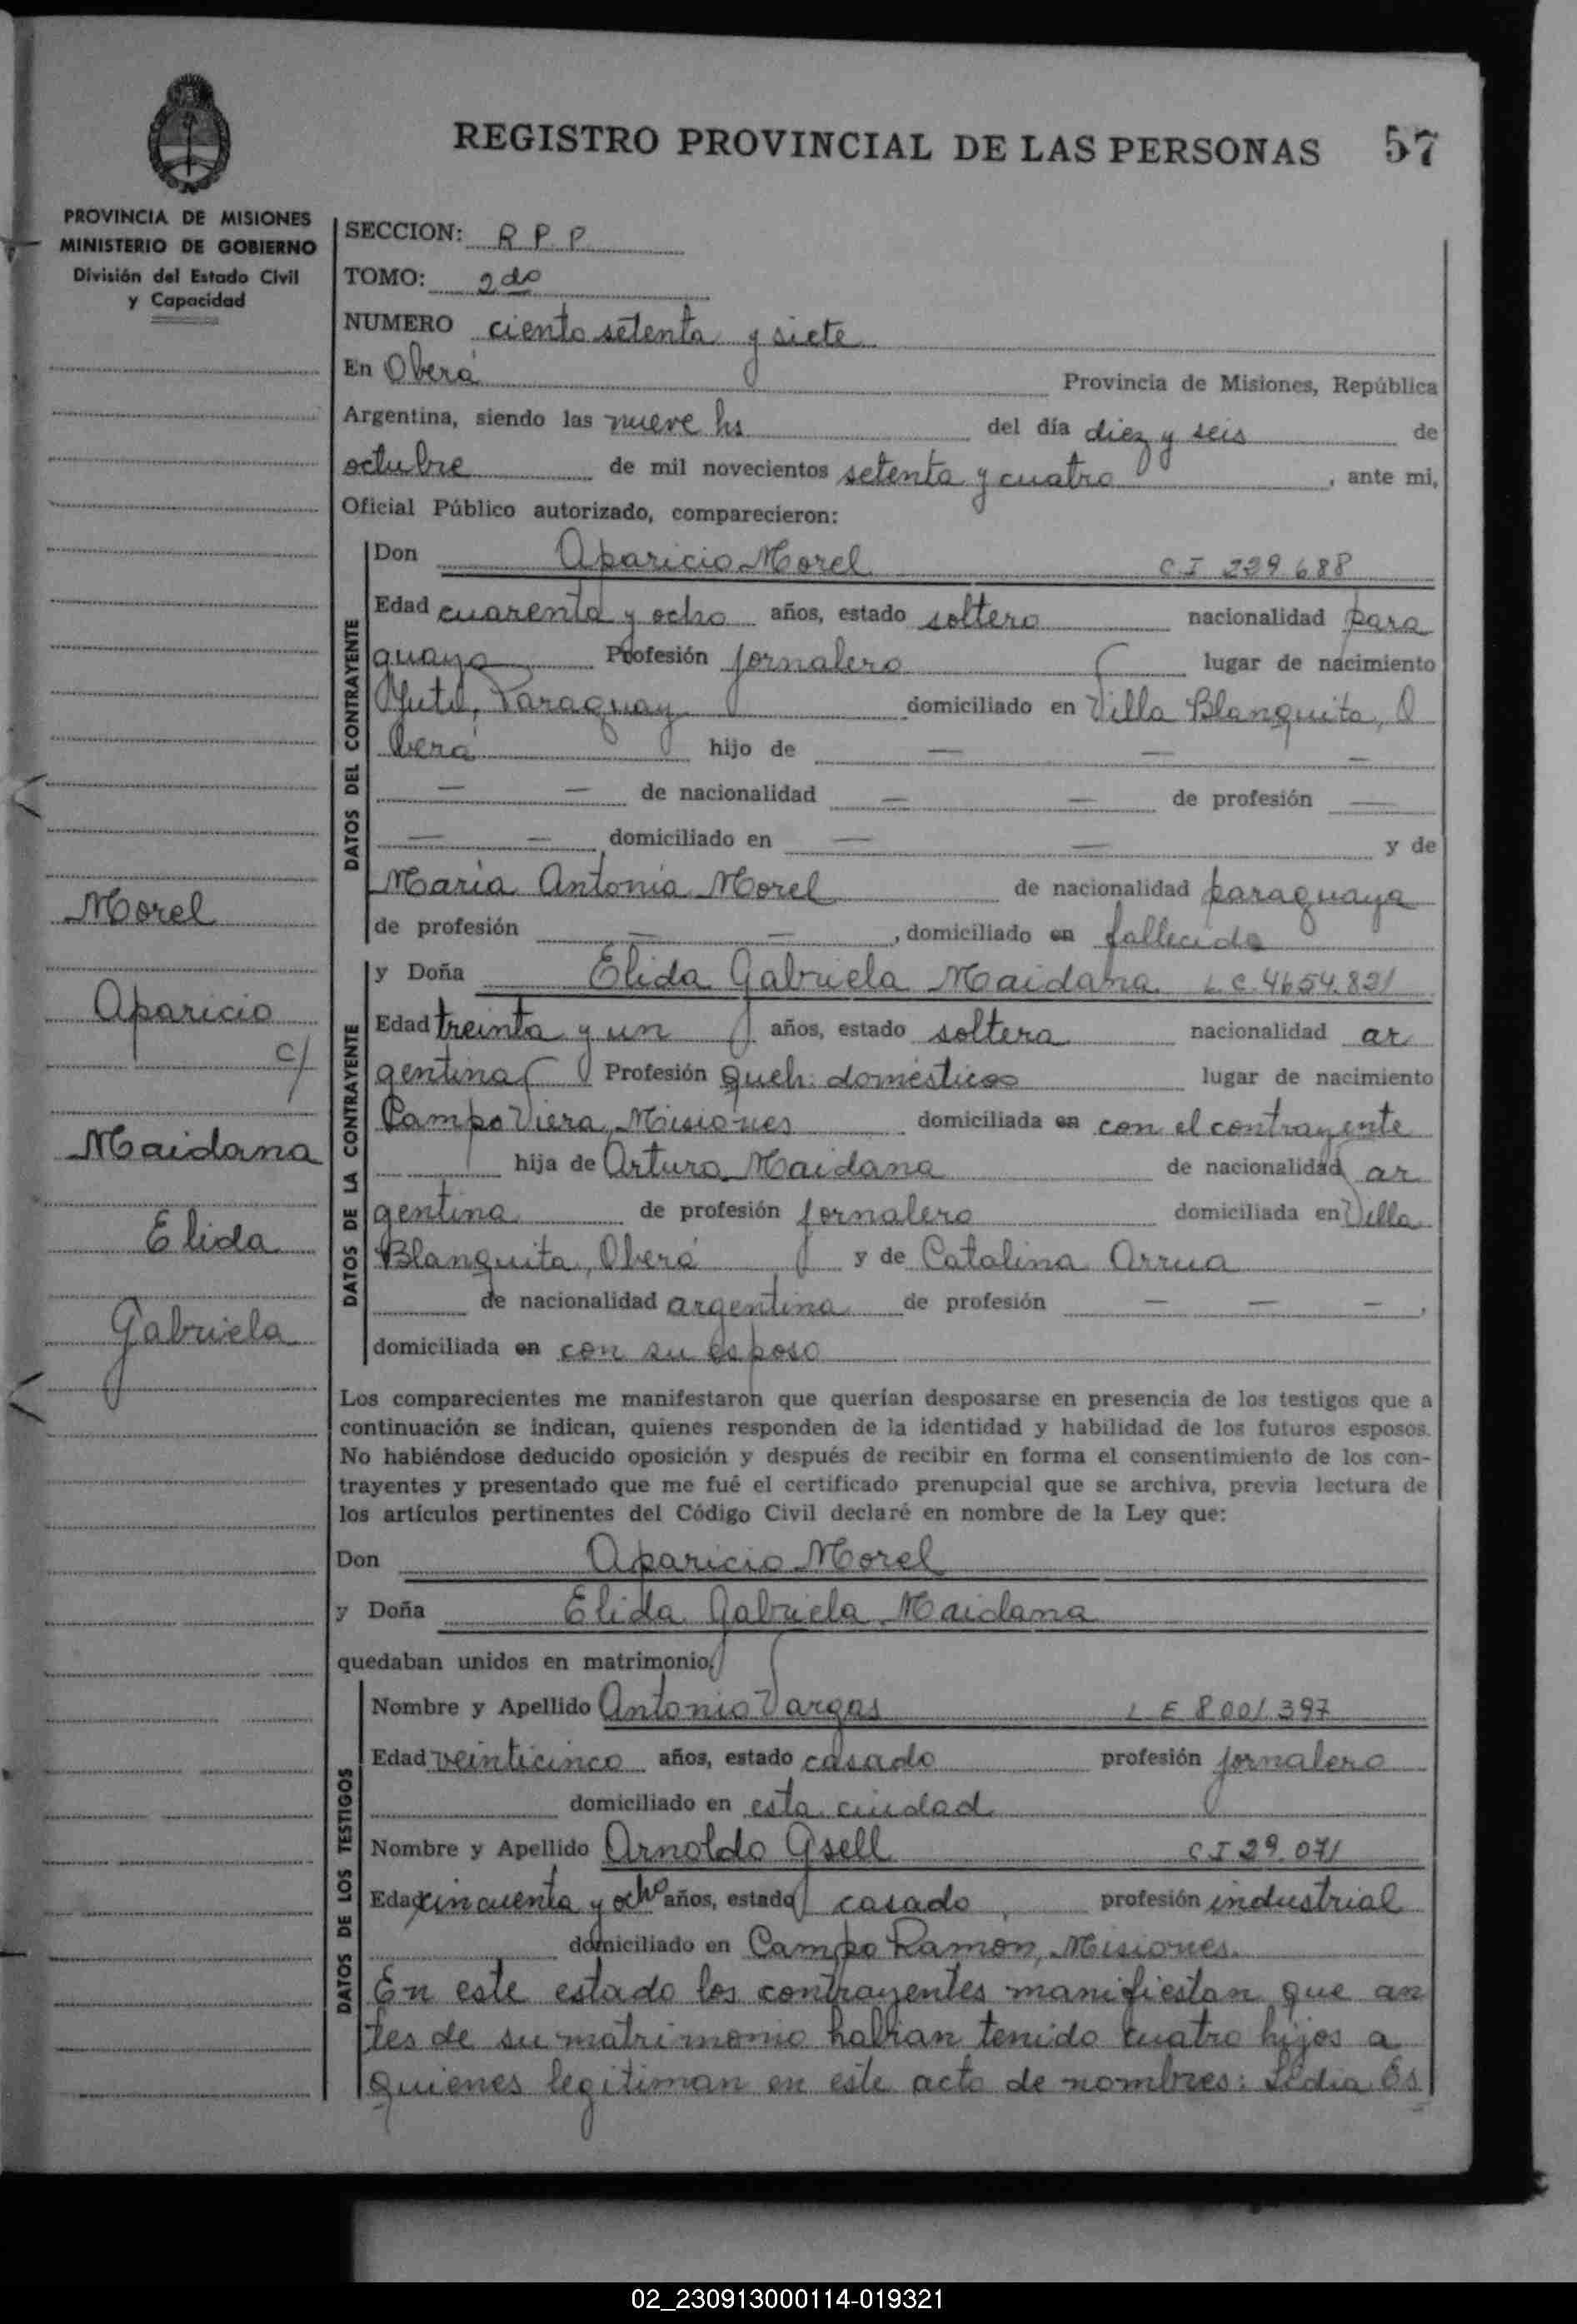 REGISTRO PROVINCIAL DE LAS PERSONAS 57
PROVINCIA DE MISIONES
MINISTERIO DE GOBIERNO
División del Estado Civil
y Capacidad
Morel
Aparicio
c/
Maidana
Elida
Gabriela
SECCION: R P P
TOMO: 2do
NUMERO ciento setenta y siete
En Oberá Provincia de Misiones, República
Argentina, siendo las nueve hs del día diez y seis de
octubre de mil novecientos setenta y cuatro, ante mi,
Oficial Público autorizado, comparecieron:
DATOS DEL CONTRAYENTE
Don Aparicio Morel C I 229.688
Edad cuarenta y ocho años, estado soltero nacionalidad para
guaya Profesión jornalero lugar de nacimiento
Yuty, Paraguay domiciliado en Villa Blanquita, O
berá hijo de — — —
— — de nacionalidad — — de profesión —
— — domiciliado en — — y de
Maria Antonia Morel de nacionalidad paraguaya
de profesión — —, domiciliado en fallecida
DATOS DE LA CONTRAYENTE
y Doña Elida Gabriela Maidana L.C. 4654.821
Edad treinta y un años, estado soltera nacionalidad ar
gentina Profesión queh. domésticos lugar de nacimiento
Campo Viera, Misiones domiciliada en con el contrayente
hija de Arturo Maidana de nacionalidad ar
gentina de profesión jornalero domiciliada en Villa
Blanquita, Oberá y de Catalina Arrua
de nacionalidad argentina de profesión — — —,
domiciliada en con su esposo
Los comparecientes me manifestaron que querían desposarse en presencia de los testigos que a
continuación se indican, quienes responden de la identidad y habilidad de los futuros esposos.
No habiéndose deducido oposición y después de recibir en forma el consentimiento de los con-
trayentes y presentado que me fué el certificado prenupcial que se archiva, previa lectura de
los artículos pertinentes del Código Civil declaré en nombre de la Ley que:
Don Aparicio Morel
y Doña Elida Gabriela Maidana
quedaban unidos en matrimonio.
DATOS DE LOS TESTIGOS
Nombre y Apellido Antonio Vargas L E 8.001.397
Edad veinticinco años, estado casado profesión jornalero
domiciliado en esta ciudad
Nombre y Apellido Arnoldo Gsell C I 29.071
Edad cincuenta y ocho años, estado casado, profesión industrial
domiciliado en Campo Ramon, Misiones.
En este estado los contrayentes manifiestan que an
tes de su matrimonio habian tenido cuatro hijos a
quienes legitiman en este acto de nombres: Lidia Es
02_230913000114-019321